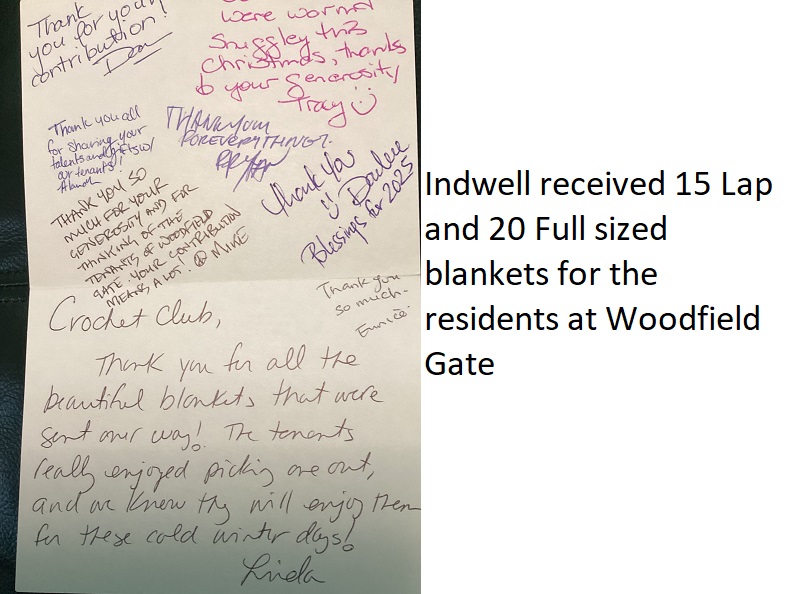 Thank
you for your
contribution!
were warm
Snuggley this
Christmas, thanks
to your generosity
Tracy
Thank you all
for sharing your
talents and gifts w/
our tenants!
THANK YOU
FOR EVERYTHING!
RYAN
Thank you
Darlene
Blessings for 2025
THANK YOU SO
MUCH FOR YOUR
GENEROSITY AND FOR
THINKING OF THE
TENANTS OF WOODFIELD
GATE. YOUR CONTRIBUTION
MEANS A LOT. MIKE
Thank you
so much-
Eunice
Crochet Club,
Thank you for all the
beautiful blankets that were
sent our way! The tenants
really enjoyed picking one out,
and we know they will enjoy them
for these cold winter days!
Linda
Indwell received 15 Lap
and 20 Full sized
blankets for the
residents at Woodfield
Gate